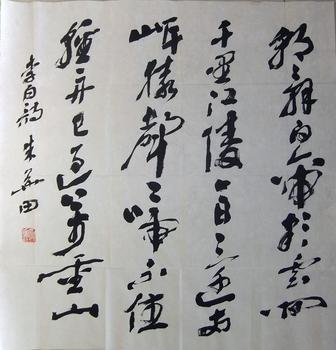 朝辭白帝彩雲間
千里江陵一日還兩
岸猿聲啼不住
輕舟已過萬重山
李白詩 朱 田